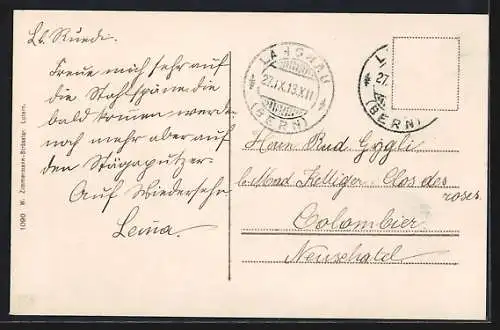 Lb. Ruedi.
Freue mich sehr auf
die Stahlspäne die
bald kommen werde
noch mehr aber auf
den Stägaputzer.
Auf Wiedersehn
Lema.
1090 W. Zimmermann-Strässler, Luzern.
LANGNAU
27.IX.13.XII
(BERN)
L
27.
(BERN)
Herrn Rud. Gygli
b. Mad Kelliger Clos des
roses.
Colombier
Neuchatel